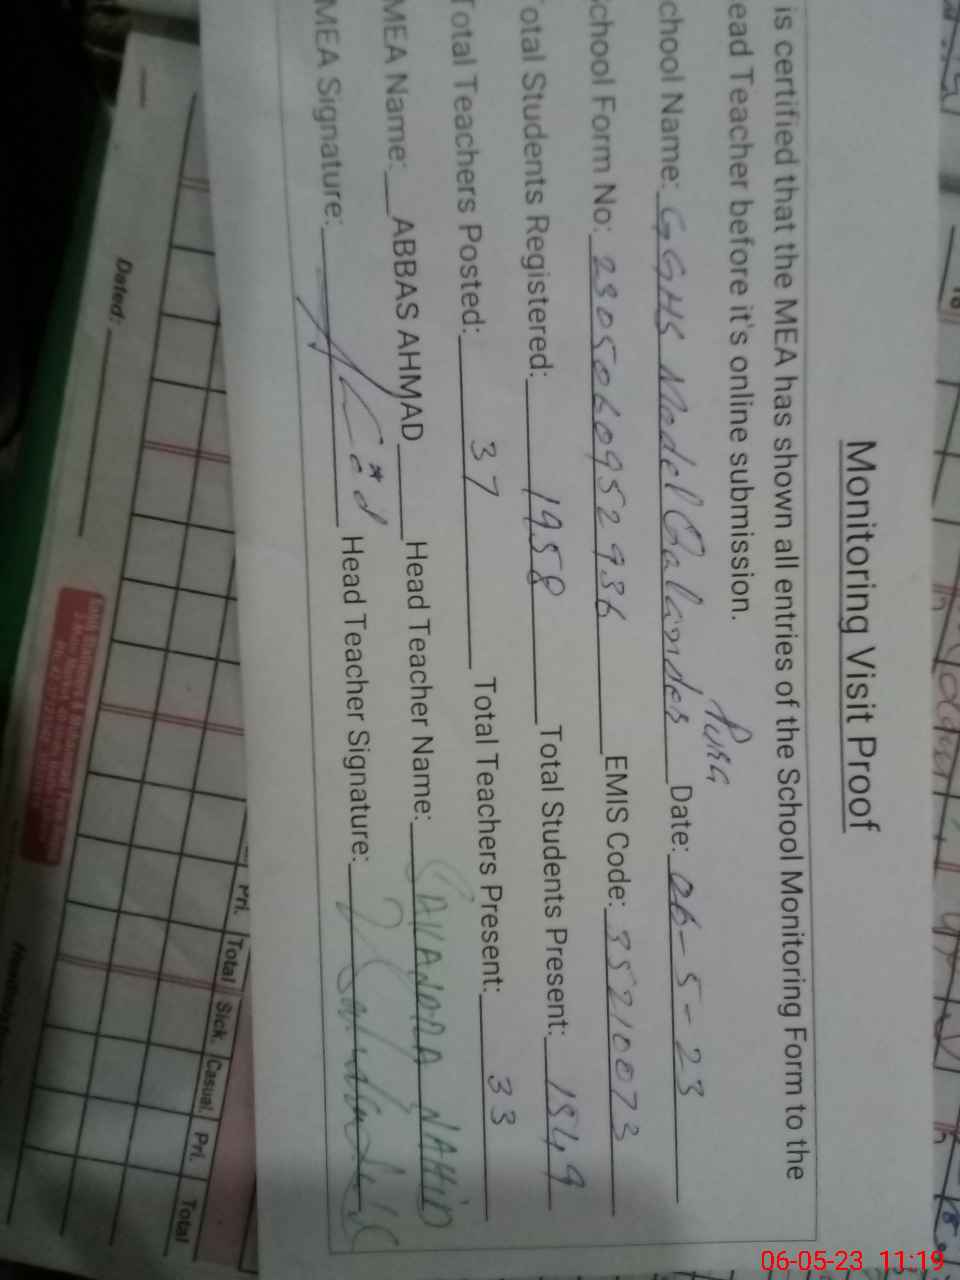 Monitoring Visit Proof
is certified that the MEA has shown all entries of the School Monitoring Form to the
ead Teacher before it's online submission.
chool Name: GGHS Model Qalander Pura Date: 06-5-23
chool Form No: 2305060952936 EMIS Code: 35210073
otal Students Registered: 1958 Total Students Present: 1549
Total Teachers Posted: 37 Total Teachers Present: 33
MEA Name: ABBAS AHMAD Head Teacher Name: NAHID
MEA Signature: Head Teacher Signature:
Dated:
Pri. Total Sick. Casual. Pri. Total
06-05-23 11:19